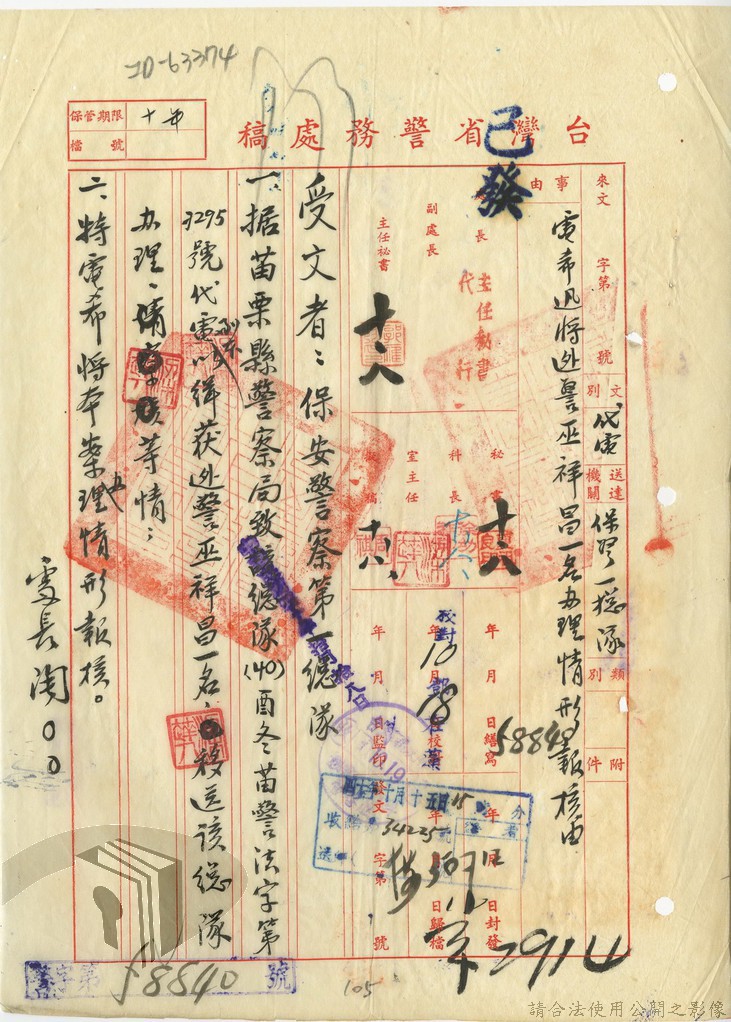 JD-63374
保管期限 十年
檔號
台灣省警務處稿
已發
來文 字第 號
事由
電希迅將逃警巫祥昌一名办理情形報核由
文別 代電
送達機關 保警一總隊
類別
附件
處長
主任秘書代行
副處長
主任秘書
十、八
秘書
科長
室主任
擬稿
十八
十八
校對
年 月 日繕寫
年 月 日校對
年 月 日監印
年 月 日封發
年 月 日歸檔
發文 字第 號
58840
34225
受文者：保安警察第一總隊
一、据苗栗縣警察局致該總隊(40)酉冬苗警法字第
3295號代電以緝获逃警巫祥昌一名，移送該總隊
办理，請等情；
二、特電希將本案办理情形報核。
處長陶〇〇
警字第58840號
105
2914
請合法使用公開之影像